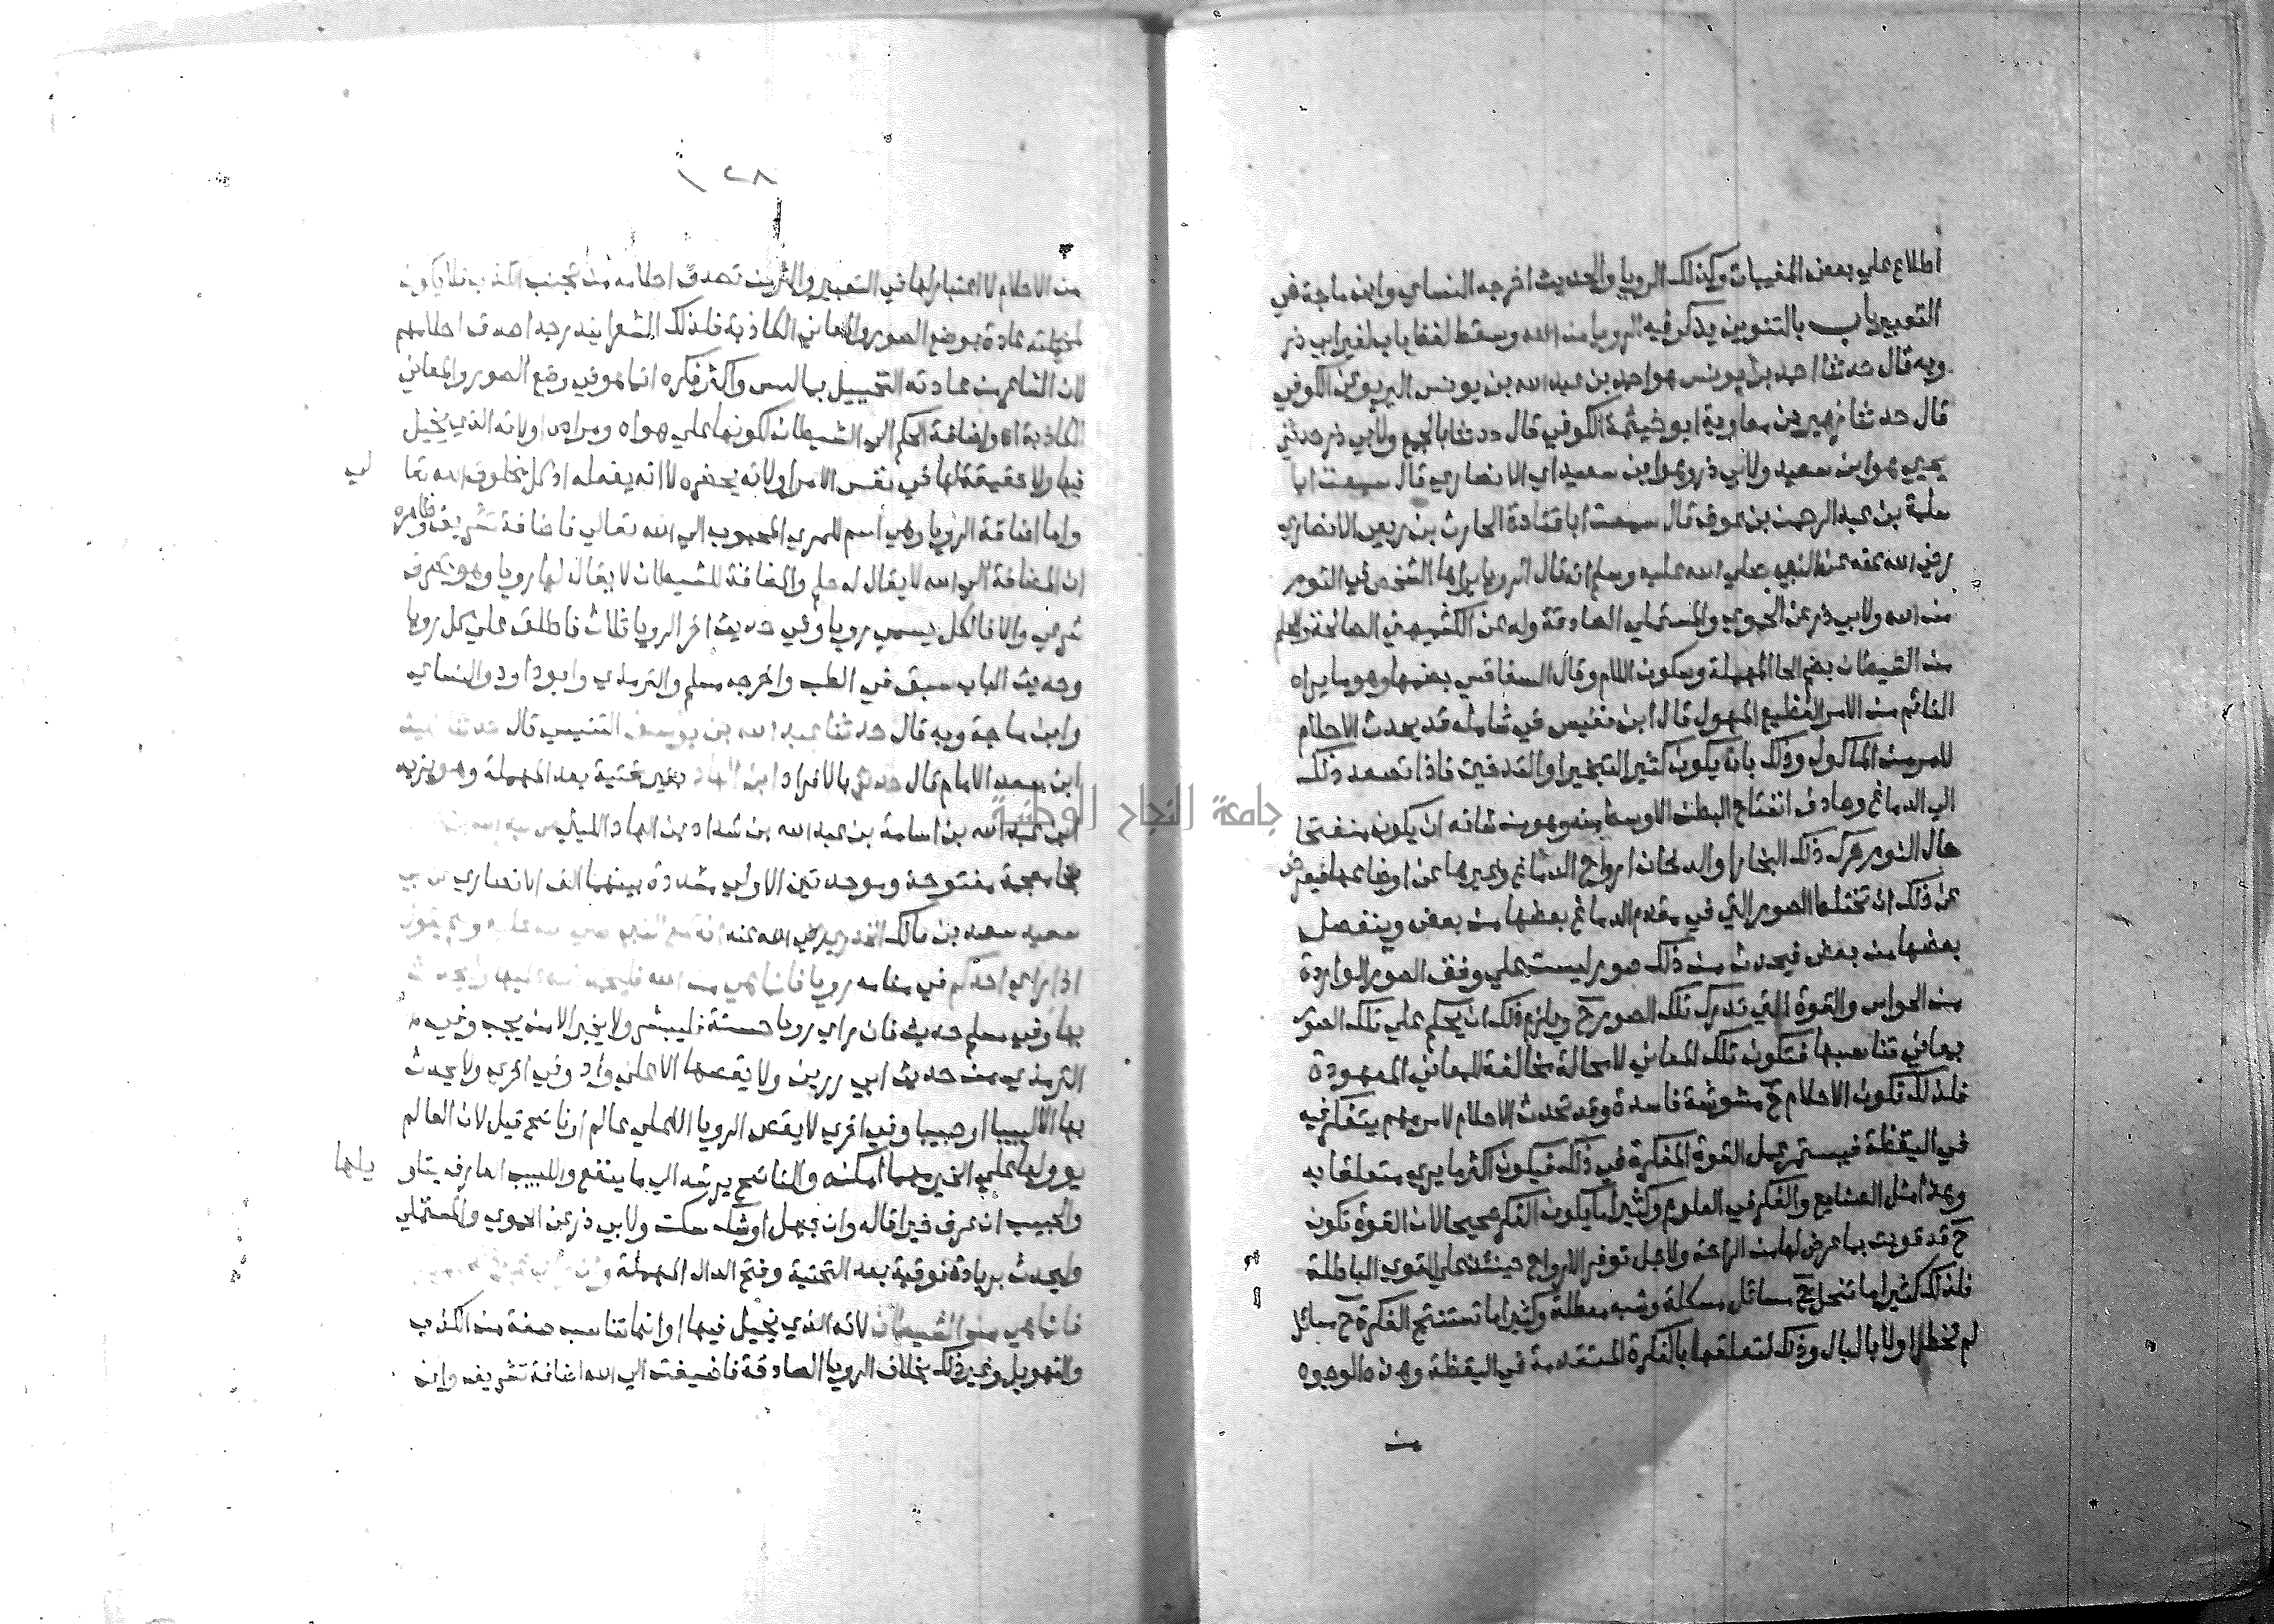 اطلاع علي بعض المغيبات وكذلك الرويا والحديث اخرجه النساي وابن ماجة في
التعبير باب بالتنوين يذكر فيه الرويا من الله وسقط لفظ باب لغير ابي ذر
وبه قال حدثنا احمد بن يونس هو احمد بن عبد الله بن يونس اليربوعي الكوفي
قال حدثنا زهير بن معاوية ابو خيثمة الكوفي قال حدثنا بالجمع ولابي ذر حدثني
يحيي هو ابن سعيد ولابي ذر وهو ابن سعيد اي الانصاري قال سمعت ابا
سلمة بن عبد الرحمن بن عوف قال سمعت ابا قتادة الحارث بن ربعي الانصاري
رضي الله عنه عن النبي صلي الله عليه وسلم انه قال الرويا يراها الشخص في النوم
من الله ولابي ذر عن الحموي والمستملي الصادقة وله عن الكشميهني الصالحة والحلم
من الشيطان بضم الحا المهملة وسكون اللام وقال السفاقسي بضمها وهو ما يراه
النائم من الامر الفظيع المهول قال ابن نفيس في شامله قد يحدث الاحلام
لامر من الماكول وذلك بان يكون كثير التبخير او التدخين فاذا تصعد ذلك
الي الدماغ وصادف انفتاح البطن الاوسط منه وهو من شانه ان يكون منفتحا
حال النوم حرك ذلك البخار او الدخان ارواح الدماغ وغيرها عن اوضاعها فيعرض
عن ذلك ان تختلط الصور التي في مقدم الدماغ بعضها من بعض وينفصل
بعضها من بعض فيحدث من ذلك صور ليست علي وفق الصور الواردة
من الحواس والقوة التي تدرك تلك الصور ح ويلزم ذلك ان يحكم علي تلك الصور
بمعاني تناسبها فتكون تلك المعاني لا محالة مخالفة للمعاني المعهودة
فلذلك تكون الاحلام ح مشوشة فاسدة وقد تحدث الاحلام لامر مهم يتفكر فيه
في اليقظة فيستمر عمل القوة المفكرة في ذلك فيكون اكثر ما يري متعلقا به
وهذا مثل الصنايع والفكر في العلوم وكثيرا ما يكون الفكر صحيحا لان القوة تكون
ح قد قويت بما عرض لها من الراحة ولاجل توفر الارواح حينئذ علي القوي الباطنة
فلذلك كثيرا ما تنحل ح مسائل مشكلة وشبه معطلة وكثيرا ما تستنتج الفكرة ح مسائل
لم تخطر اولا بالبال وذلك لتعلقها بالفكرة المتقدمة في اليقظة وهذه الوجوه
من
١٢٨
من الاحلام لا اعتبار لها في التعبير واكثر من تصدق احلامه من تجنب الكذب فلا يكون
لمخيلته عادة بوضع الصور والمعاني الكاذبة فلذلك الشعرا يندر جدا صدق احلامهم
لان الشاعر من عادته التخييل بما ليس واكثر فكره انما هو في وضع الصور والمعاني
الكاذبة اه واضافة الحكم الي الشيطان لكونها علي هواه ومراده او لانه الذي يخيل
فيها ولا حقيقة لها في نفس الامر او لانه يحضره لا انه يفعله اذ كل مخلوق الله تعا
لي
واما اضافة الرويا وهي اسم للمري المحبوب الي الله تعالي فاضافة تشريف وظاهره
ان المضافة الي الله لا يقال لها حلم والمضافة للشيطان لا يقال لها رويا وهو تصرف
شرعي والا فالكل يسمي رويا وفي حديث اخر الرويا ثلاث فاطلق علي كل رويا
وحديث الباب سبق في الطب واخرجه مسلم والترمذي وابو داود والنساي
وابن ماجة وبه قال حدثنا عبد الله بن يوسف التنيسي قال حدثنا الليث
ابن سعد الامام قال حدثني بالافراد ابن الهاد بغير تحتية بعد المهملة وهو يزيد
ابن عبد الله بن اسامة بن عبد الله بن شداد بن الهاد الليثي عن عبد الله بن
بخا معجمة مفتوحة وموحدتين الاولي مشددة بينهما الف الانصاري عن ابي
سعيد سعد بن مالك الخدري رضي الله عنه انه سمع النبي صلي الله عليه وسلم يقول
اذا راي احدكم في منامه رويا فانما هي من الله فليحمد الله عليها وليحدث
بها وفي مسلم حديث فان راي رويا حسنة فليبشر ولا يخبر الا من يحب وفي
الترمذي من حديث ابي رزين ولا يقصها الا علي واد وفي اخري ولا يحدث
بها الا لبيبا او حبيبا وفي اخري لا يقص الرويا الا علي عالم او ناصح قيل لان العالم
يوولها علي الخير مهما امكنه والناصح يرشد الي ما ينفع واللبيب العارف بتاو
يلها
والحبيب ان عرف خيرا قاله وان جهل او شك سكت ولابي ذر عن الحموي والمستملي
وليتحدث بزيادة فوقية بعد التحتية وفتح الدال المهملة
فانما هي من الشيطان لانه الذي يخيل فيها او انها تناسب صفة من الكذب
والتهويل وغير ذلك بخلاف الرويا الصادقة فاضيفت الي الله اضافة تشريف وان
جامعة النجاح الوطنية